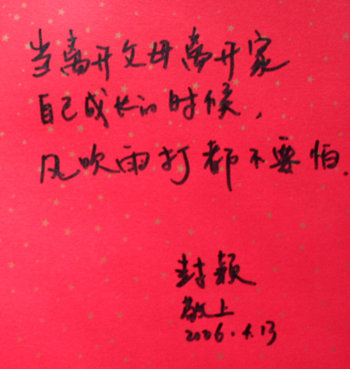 当离开父母离开家
自己成长的时候，
风吹雨打都不要怕.
封颖
敬上
2006.4.13